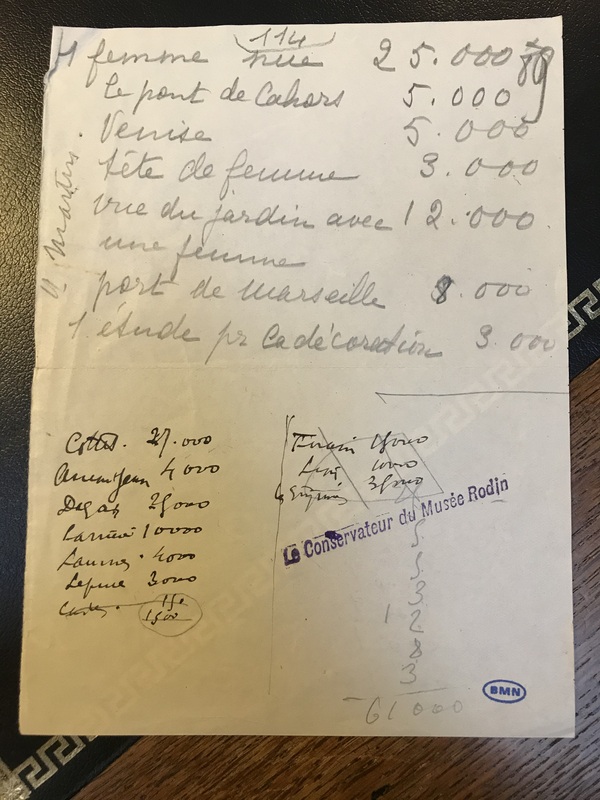 114
1 femme nue 25.000
Le pont de Cahors 5.000
Venise 5.000
tête de femme 3.000
vue du jardin avec 12.000
une femme
port de Marseille 8.000
1 étude pr La décoration 3.000
Martin
Cottet. 27.000
Aman Jean 4000
Degas 25000
Carrière 10000
4000
Lepine 3000
1500
15000
1000
35000
Le Conservateur du Musée Rodin
5
5
3
12
8
3
61000
BMN